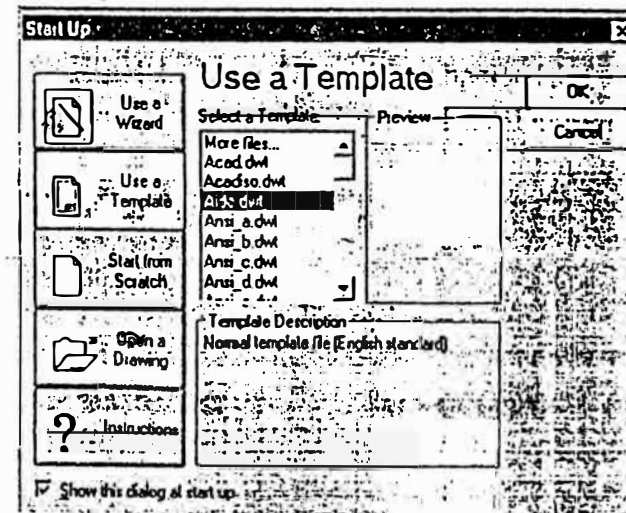 Start Up
Use a Template
OK
Cancel
Use a
Wizard
Use a
Template
Start from
Scratch
Open a
Drawing
Instructions
Select a Template
More files...
Acad.dwt
Acadiso.dwt
Ansi_a.dwt
Ansi_b.dwt
Ansi_c.dwt
Ansi_d.dwt
Preview
Template Description
Normal template file (English standard)
Show this dialog at start up